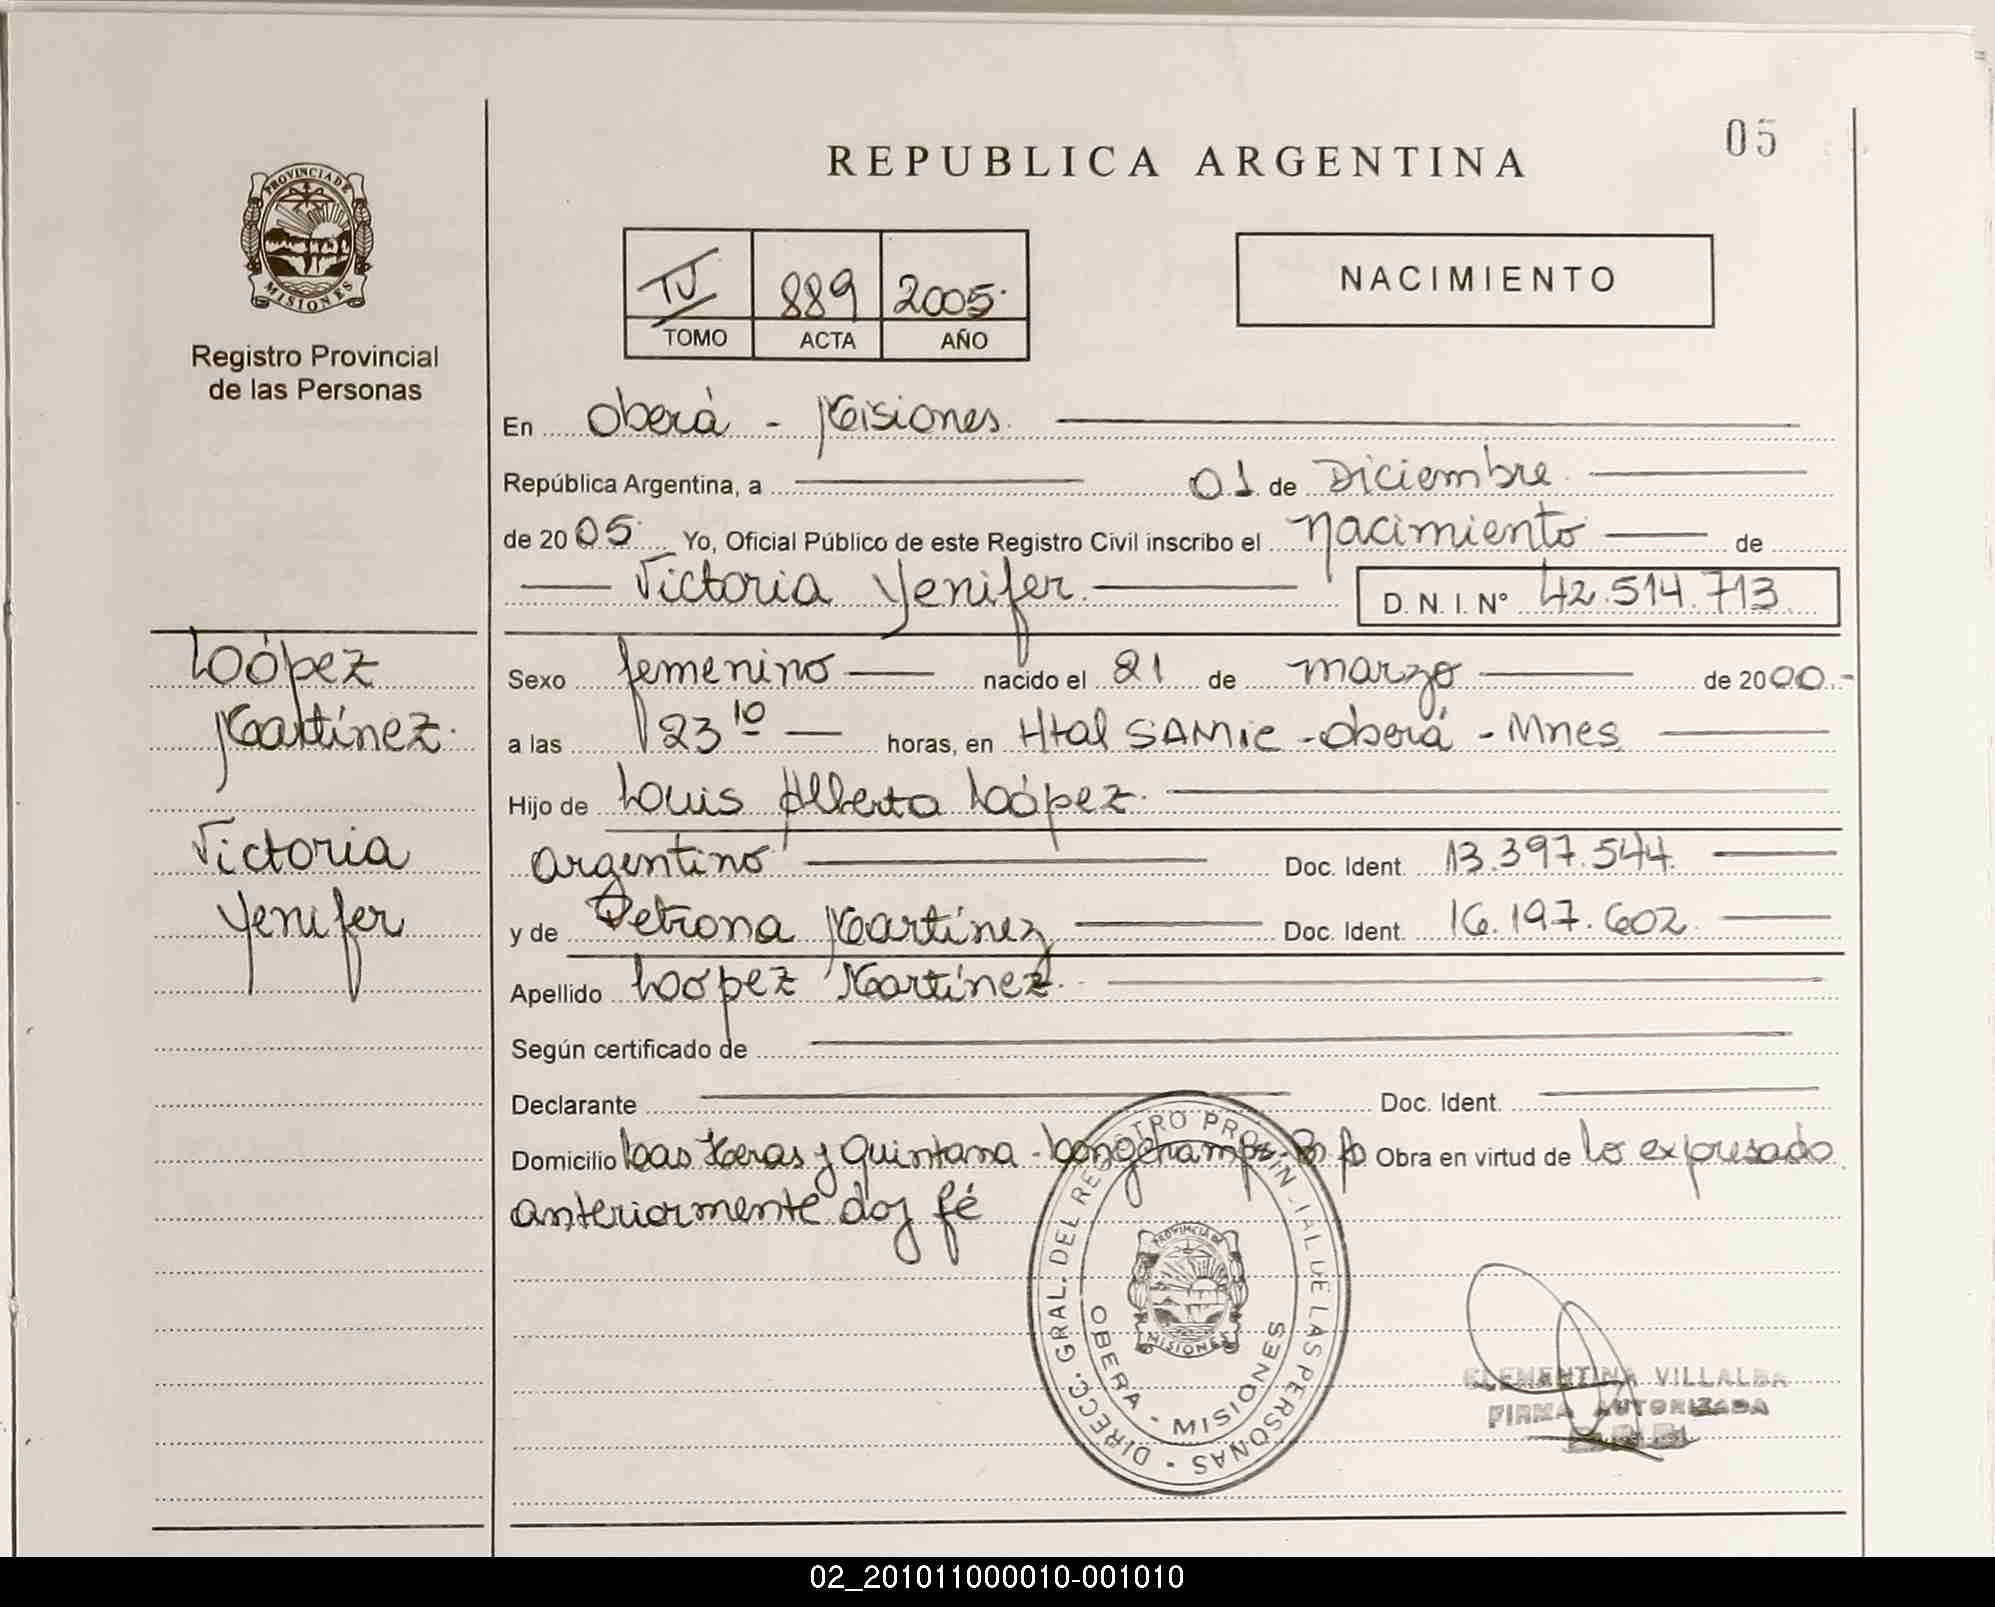 05
REPUBLICA ARGENTINA
PROVINCIA DE
MISIONES
Registro Provincial
de las Personas
IV 889 2005
TOMO ACTA AÑO
NACIMIENTO
En Oberá - Misiones
República Argentina, a 01 de Diciembre
de 2005. Yo, Oficial Público de este Registro Civil inscribo el Nacimiento de
Victoria Yenifer D. N. I. Nº 42.514.713
López
Martínez.
Victoria
Yenifer
Sexo femenino nacido el 21 de marzo de 2000.-
a las 23 10 horas, en Htal SAMIC - Oberá - Mnes
Hijo de Luis Alberto López
argentino Doc. Ident. 13.397.544
y de Petrona Martínez Doc. Ident. 16.197.602
Apellido López Martínez
Según certificado de
Declarante Doc. Ident.
Domicilio Las Heras y Quintana - Longchamps - Obra en virtud de lo expresado
anteriormente doy fé
DIRECC. GRAL. DEL REGISTRO PROVINCIAL DE LAS PERSONAS
PROVINCIA DE
MISIONES
OBERA - MISIONES
CLEMENTINA VILLALBA
FIRMA AUTORIZADA
02_201011000010-001010